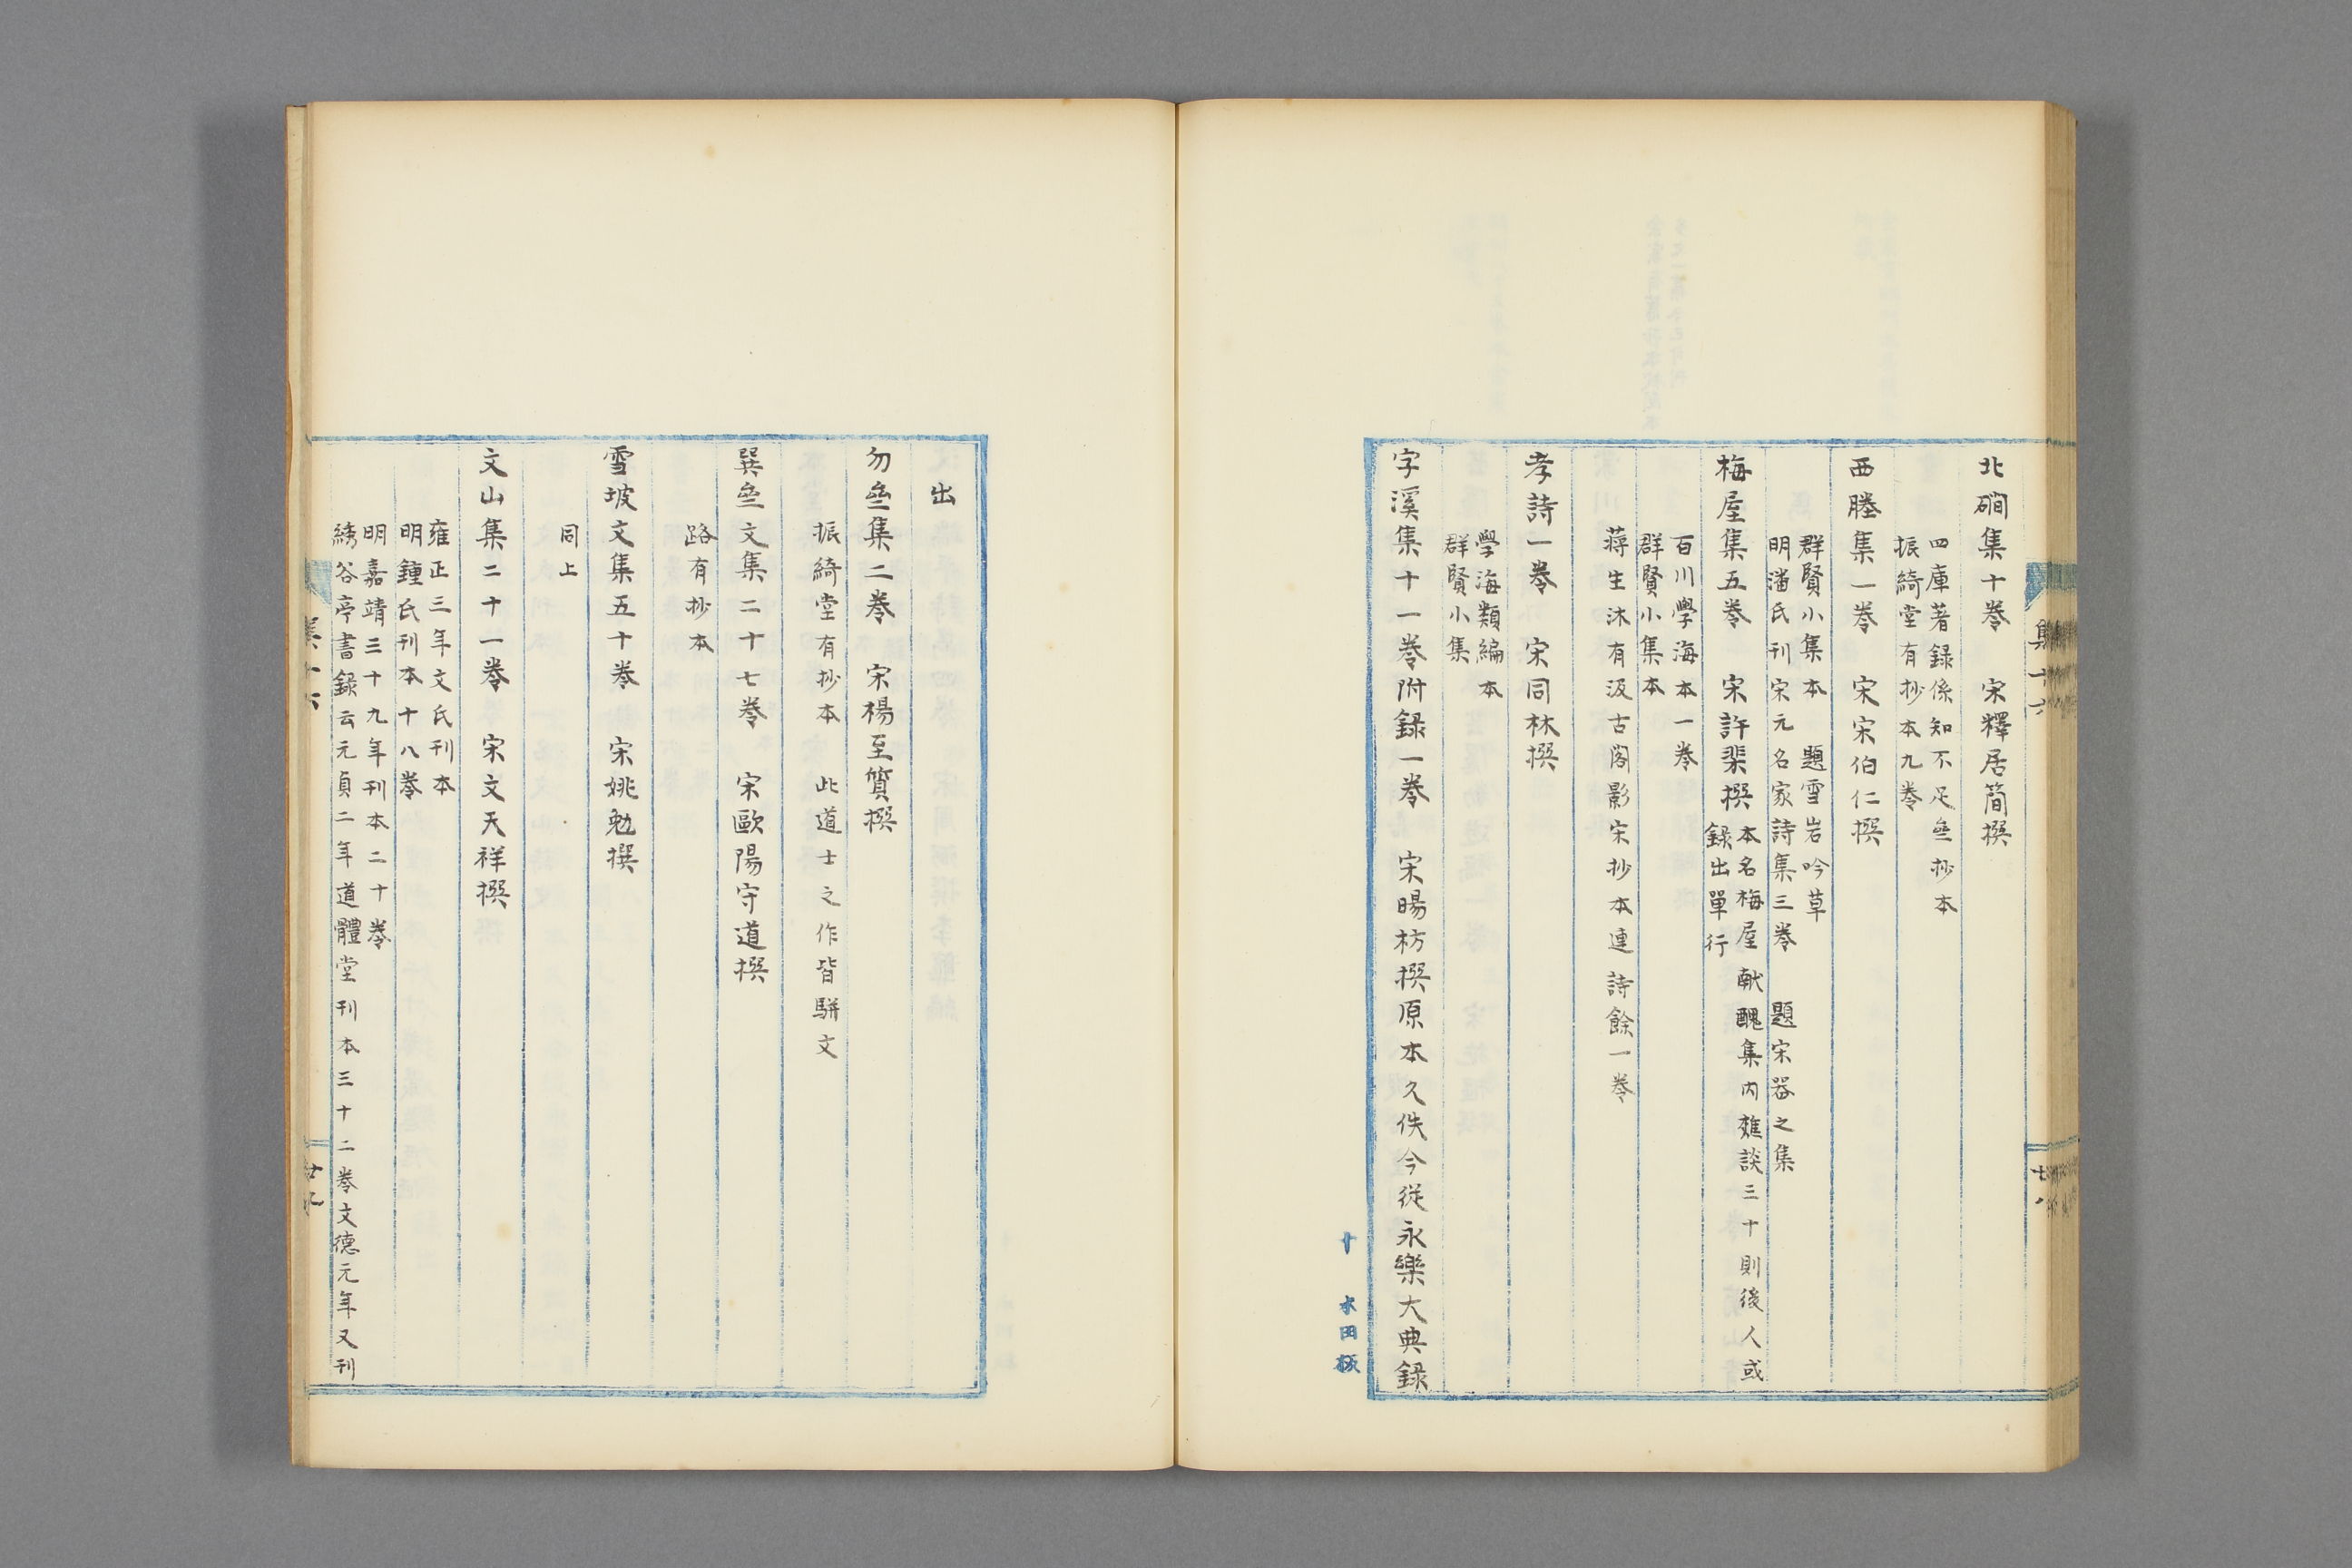 北磵集十卷　宋釋居簡撰
四庫著録係知不足亝抄本
振綺堂有抄本九卷
西塍集一卷　宋宋伯仁撰
群賢小集本　題雪岩吟草
明潘氏刊宋元名家詩集三卷　題宋器之集
梅屋集五卷　宋許棐撰
本名梅屋献醜集内雜談三十則後人或
録出單行
百川學海本一卷
群賢小集本
蒋生沐有汲古閣影宋抄本連詩餘一卷
孝詩一卷　宋同林撰
學海類編本
群賢小集
字溪集十一卷附録一卷　宋暘枋撰原本久佚今従永樂大典録
集十六
十
水田板
出
勿亝集二卷　宋楊至質撰
振綺堂有抄本　此道士之作皆駢文
巽亝文集二十七卷　宋歐陽守道撰
路有抄本
雪坡文集五十卷　宋姚勉撰
同上
文山集二十一卷　宋文天祥撰
雍正三年文氏刊本
明鍾氏刊本十八卷
明嘉靖三十九年刊本二十卷
綉谷亭書録云元貞二年道體堂刊本三十二卷文德元年又刊
集十六